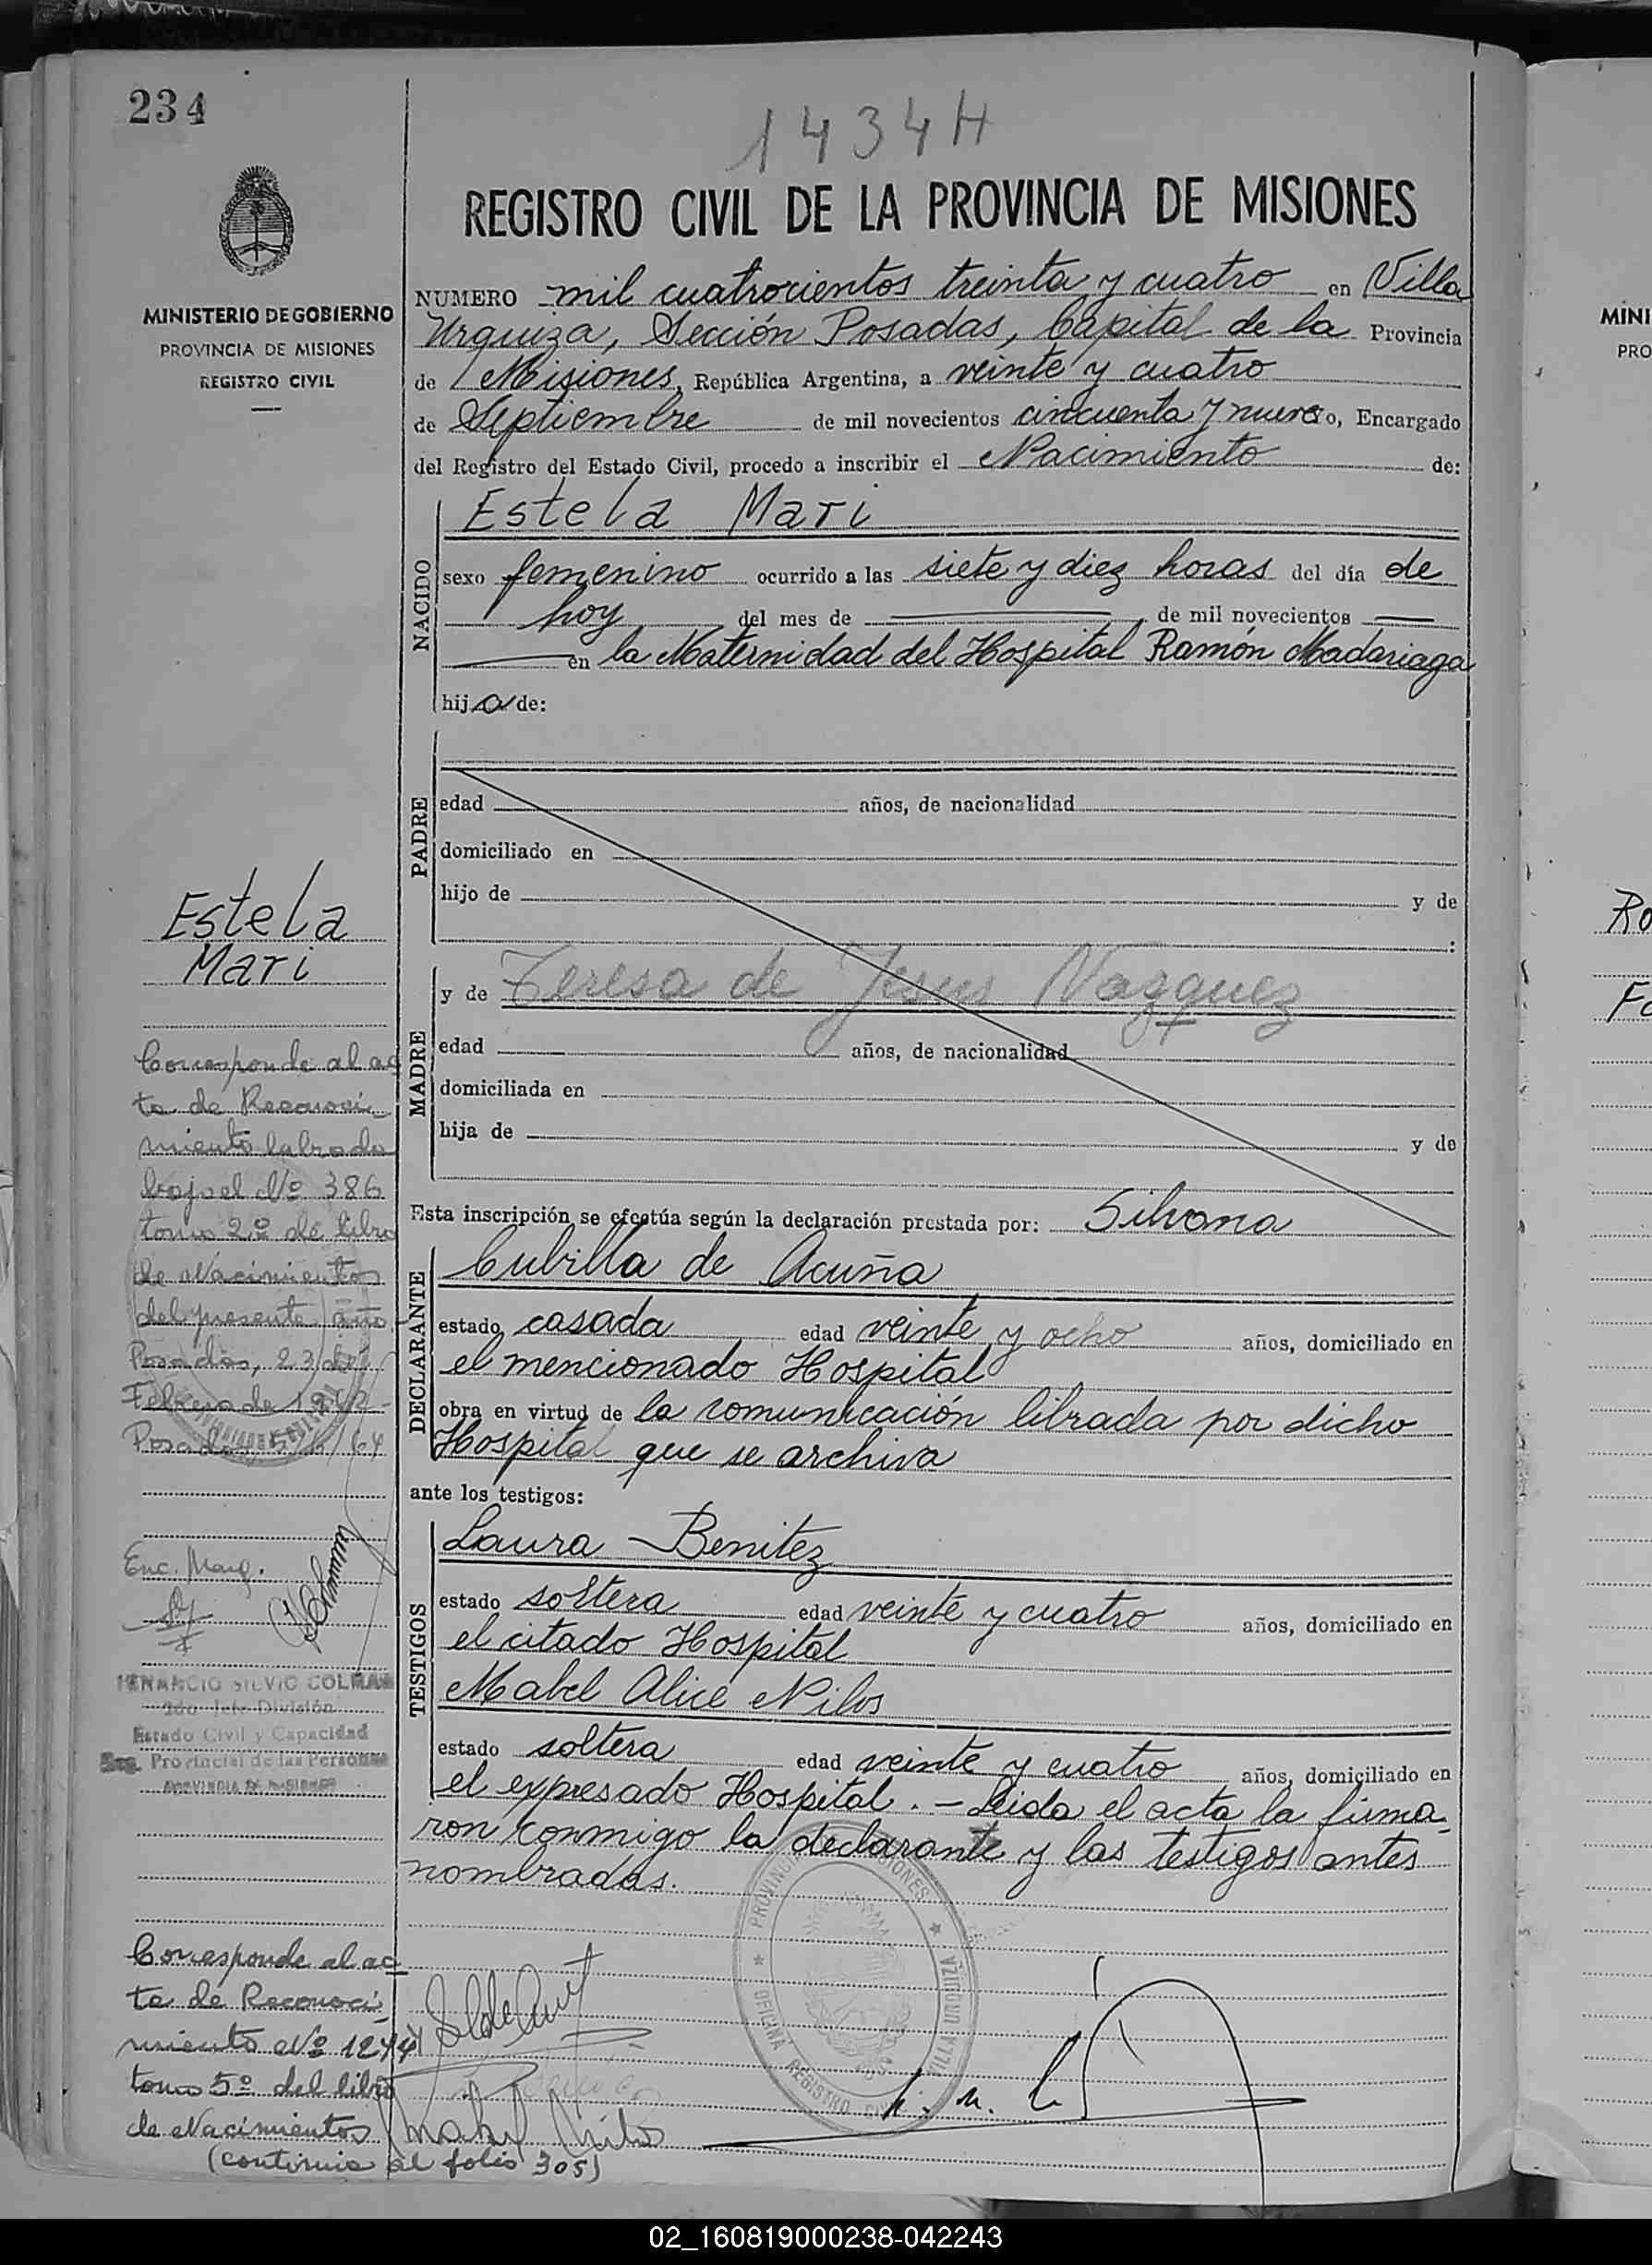 234
1434H
REGISTRO CIVIL DE LA PROVINCIA DE MISIONES
MINISTERIO DE GOBIERNO
PROVINCIA DE MISIONES
REGISTRO CIVIL
NUMERO mil cuatrocientos treinta y cuatro en Villa
Urquiza, Sección Posadas, Capital de la Provincia
de Misiones, República Argentina, a veinte y cuatro
de Septiembre de mil novecientos cincuenta y nueve, Encargado
del Registro del Estado Civil, procedo a inscribir el Nacimiento de:
NACIDO
Estela Mari
sexo femenino ocurrido a las siete y diez horas del día de
hoy del mes de de mil novecientos
en la Maternidad del Hospital Ramón Madariaga
hija de:
PADRE
edad años, de nacionalidad
domiciliado en
hijo de y de
:
MADRE
y de Teresa de Jesus Vazquez
edad años, de nacionalidad
domiciliada en
hija de y de
Esta inscripción se efectúa según la declaración prestada por: Silvana
DECLARANTE
Cubilla de Acuña
estado casada edad veinte y ocho años, domiciliado en
el mencionado Hospital
obra en virtud de la comunicación librada por dicho
Hospital que se archiva
ante los testigos:
TESTIGOS
Laura Benitez
estado soltera edad veinte y cuatro años, domiciliado en
el citado Hospital
Mabel Alice Nilos
estado soltera edad veinte y cuatro años, domiciliado en
el expresado Hospital. - Leida el acta la firma-
ron conmigo la declarante y las testigos antes
nombradas.
Estela
Mari
Corresponde al ac
ta de Reconoci-
miento labrado
bajo el Nº 386
tomo 2º de libro
de Nacimientos
del presente año
Posadas, 23 de
Febrero de
Posadas
Enc. Marg.
VENANCIO SILVIO COLMAN
2do Jefe División
Estado Civil y Capacidad
Reg. Provincial de las Personas
PROVINCIA DE MISIONES
Corresponde al ac
ta de Reconoci-
miento Nº 1274
tomo 5º del libro
de Nacimientos
(continua al folio 305)
PROVINCIA MISIONES
OFICINA REGISTRO CIVIL VILLA URQUIZA
Ro
Fo
MINI
PRO
02_160819000238-042243